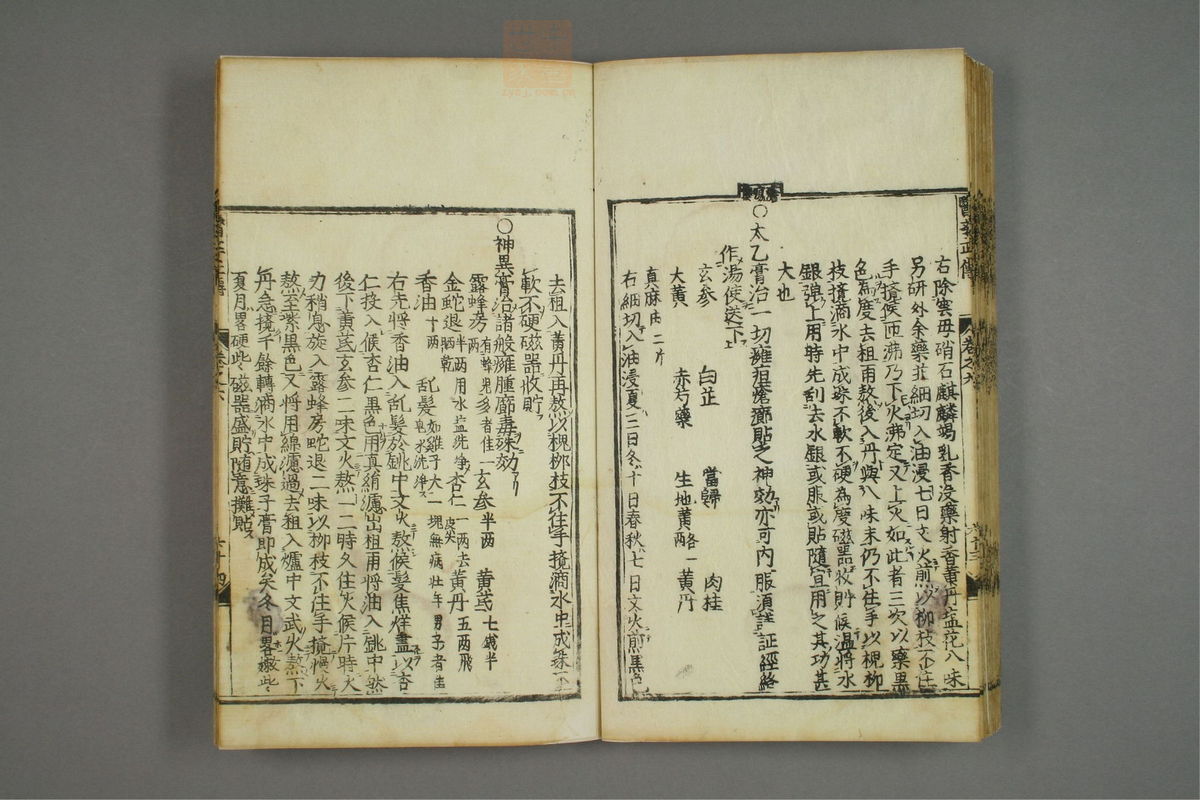 右除雲母硝石麒麟竭乳香没藥射香黄丹塩花八味
另研外余藥並細切入油浸七日文火煎以柳枝不住
手攪候匝沸乃下火沸定又上火如此者三次以藥黒
色為度去柤再熬後入丹與八味末仍不住手以槐柳
枝攪滴水中成珠不軟不硬為度磁器收貯候温將水
銀彈上用時先刮去水銀或服或貼隨宜用之其功甚
大也
○太乙膏治一切癰疽瘡癤貼之神効亦可内服須詳証經絡
作湯使送下
玄参 白芷 當歸 肉桂
大黄 赤芍藥 生地黄各一両 黄丹
真麻油二斤
右細切入油浸夏三日冬十日春秋七日文火煎黒色
去柤入黄丹再熬以槐柳枝不住手攪滴水中成珠不
軟不硬磁器收貯
○神異膏治諸般癰腫癤毒殊効
露蜂房一両有蜂兒多者佳 玄参半両 黄芪七錢半
金蛇退半両用水塩洗浄晒乾 杏仁一両去皮尖 黄丹五両飛
香油十両 乱髮如雞子大一塊無病壮年男子者佳皂水洗浄
右先將香油入乱髮於銚中文火熬候髮焦烊盡以杏
仁投入候杏仁黒色用真絹濾出柤再將油入銚中然
後下黄芪玄参二味文火熬一二時久住火候片時火
力稍息旋入露蜂房蛇退二味以柳枝不住手攪慢火
熬至紫黒色又將用綿濾過去柤入爐中文武火熬下
丹急攪千餘轉滴水中成珠子膏即成矣冬月畧嫩些
夏月畧硬些磁器盛貯隨意攤貼